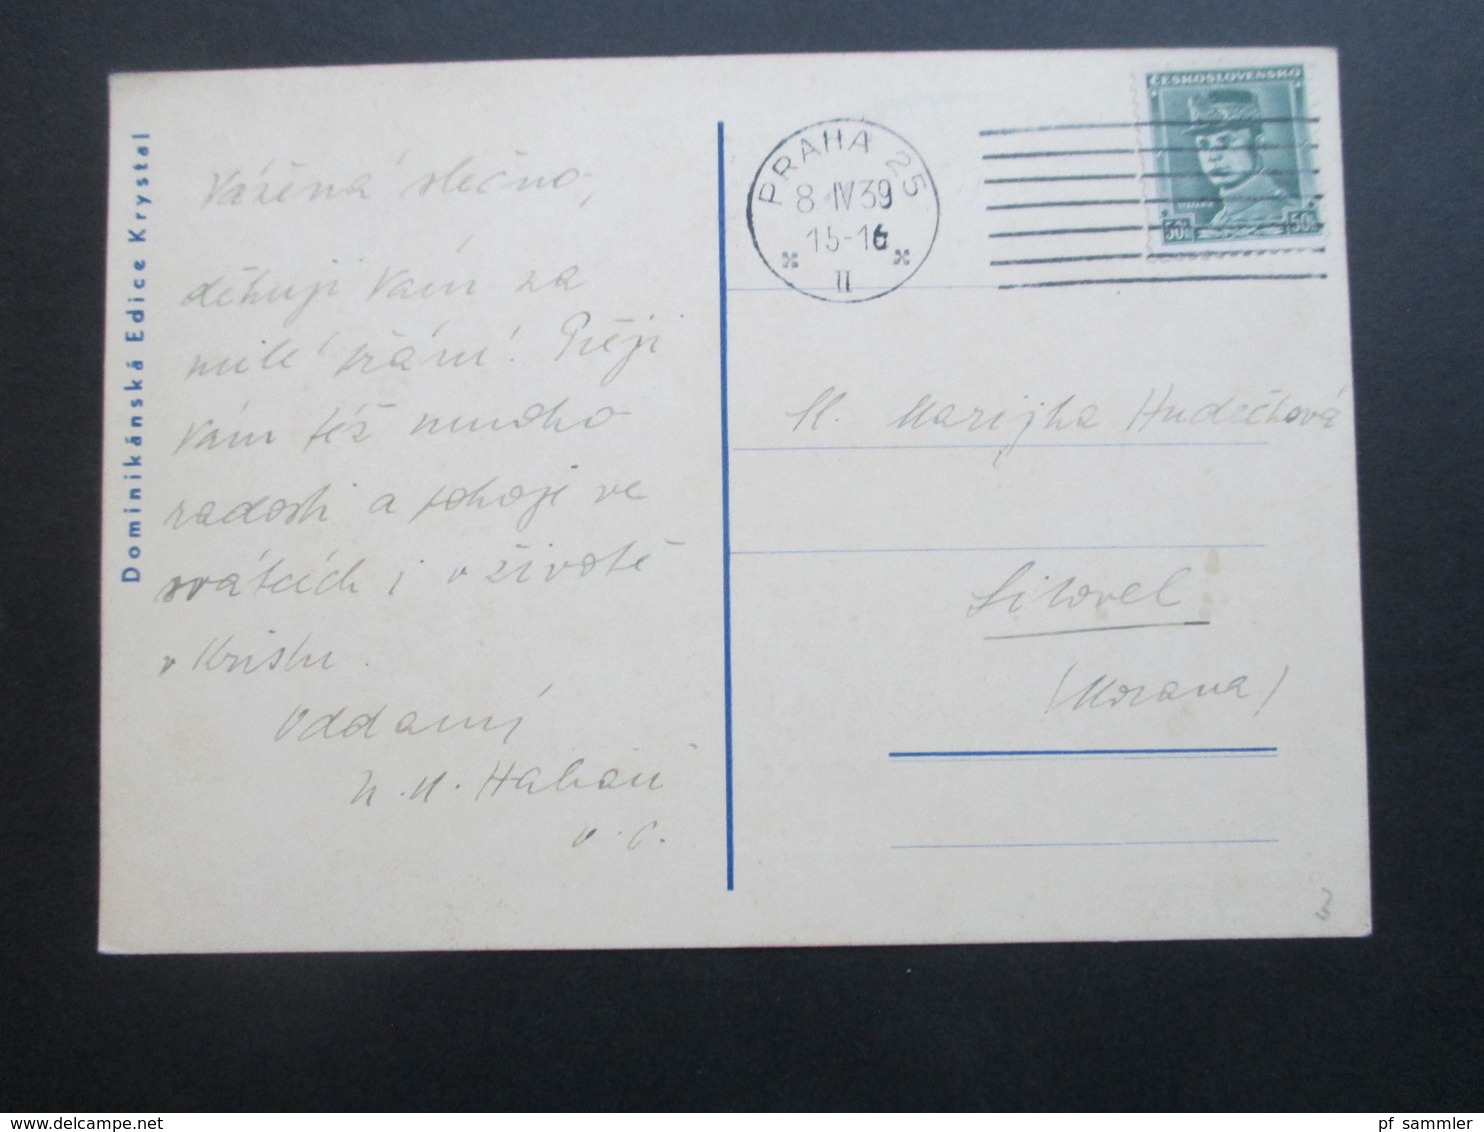 Dominikánská Edice Krystal
Vážená slečno,
děkuji Vám za
milé přání. Přeji
Vám též mnoho
radosti a pokoje ve
svátcích i v životě
v Kristu.
Oddaný
M. Habáň
PRAHA 25
8. IV 39
15-16
II
ČESKOSLOVENSKO
50h 50h
Sl. Marijka Hudečková
Litovel
(Morava)
3
pf_sammler